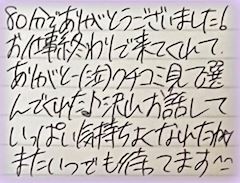 80分でありがとうございました!
お仕事終わりで来てくれて、
ありがとー(泣)クチコミ見て選
んでくれた♪沢山お話して
いっぱい気持ちよくなれたね
またいつでも待ってます〜